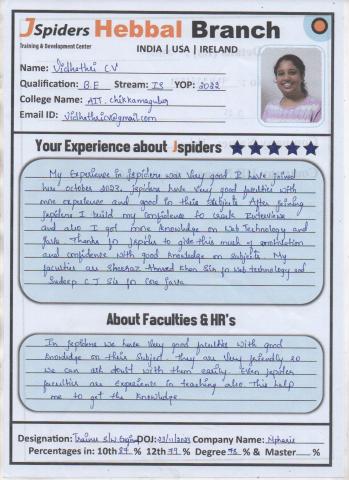 JSpiders Hebbal Branch
Training & Development Center
INDIA | USA | IRELAND
Name: Vidhathri C.V
Qualification: B.E Stream: IS YOP: 2022
College Name: AIT. Chikkamagalur
Email ID: vidhathricv@gmail.com
Your Experience about Jspiders
My Experience in Jspiders was very good I have joined
here October 2022. Jspiders have very good faculties with
more experience and good in their subjects. After joining
Jspiders I build my confidence to crack Interview
and also I got more knowledge on Web Technology and
Java. Thanks for Jspider to give this much of motivation
and confidence with good knowledge on subjects. My
faculties are Sheeraz Ahmed Khan Sir for Web technology and
Sadeep C J Sir for Core Java.
About Faculties & HR's
In Jspiders we have very good faculties with good
knowledge on their Subject. They are very friendly so
we can ask doubt with them easily. Even jspider
faculties are experience in teaching also this help
me to get the knowledge
Designation: Trainee S/W Engin DOJ: 03/11/2023 Company Name: Mpharie
Percentages in: 10th % 12th 79 % Degree 78 % & Master %